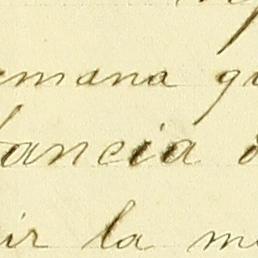 emana qu
tancia d
ir la me